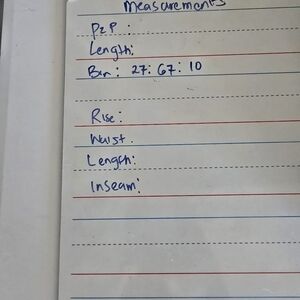 Measurements
P2P :
Length:
Bin: 27: 67: 10
Rise:
Waist.
Length:
Inseam: